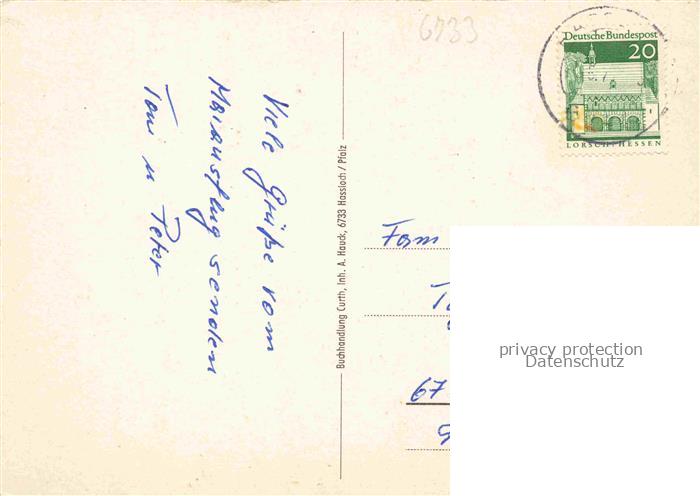 6733
Deutsche Bundespost
20
LORSCH/HESSEN
Viele Grüße vom
Maiausflug senden
Toni u Peter
Buchhandlung Curth, Inh. A. Hauck, 6733 Hassloch / Pfalz
Fam
67
privacy protection
Datenschutz